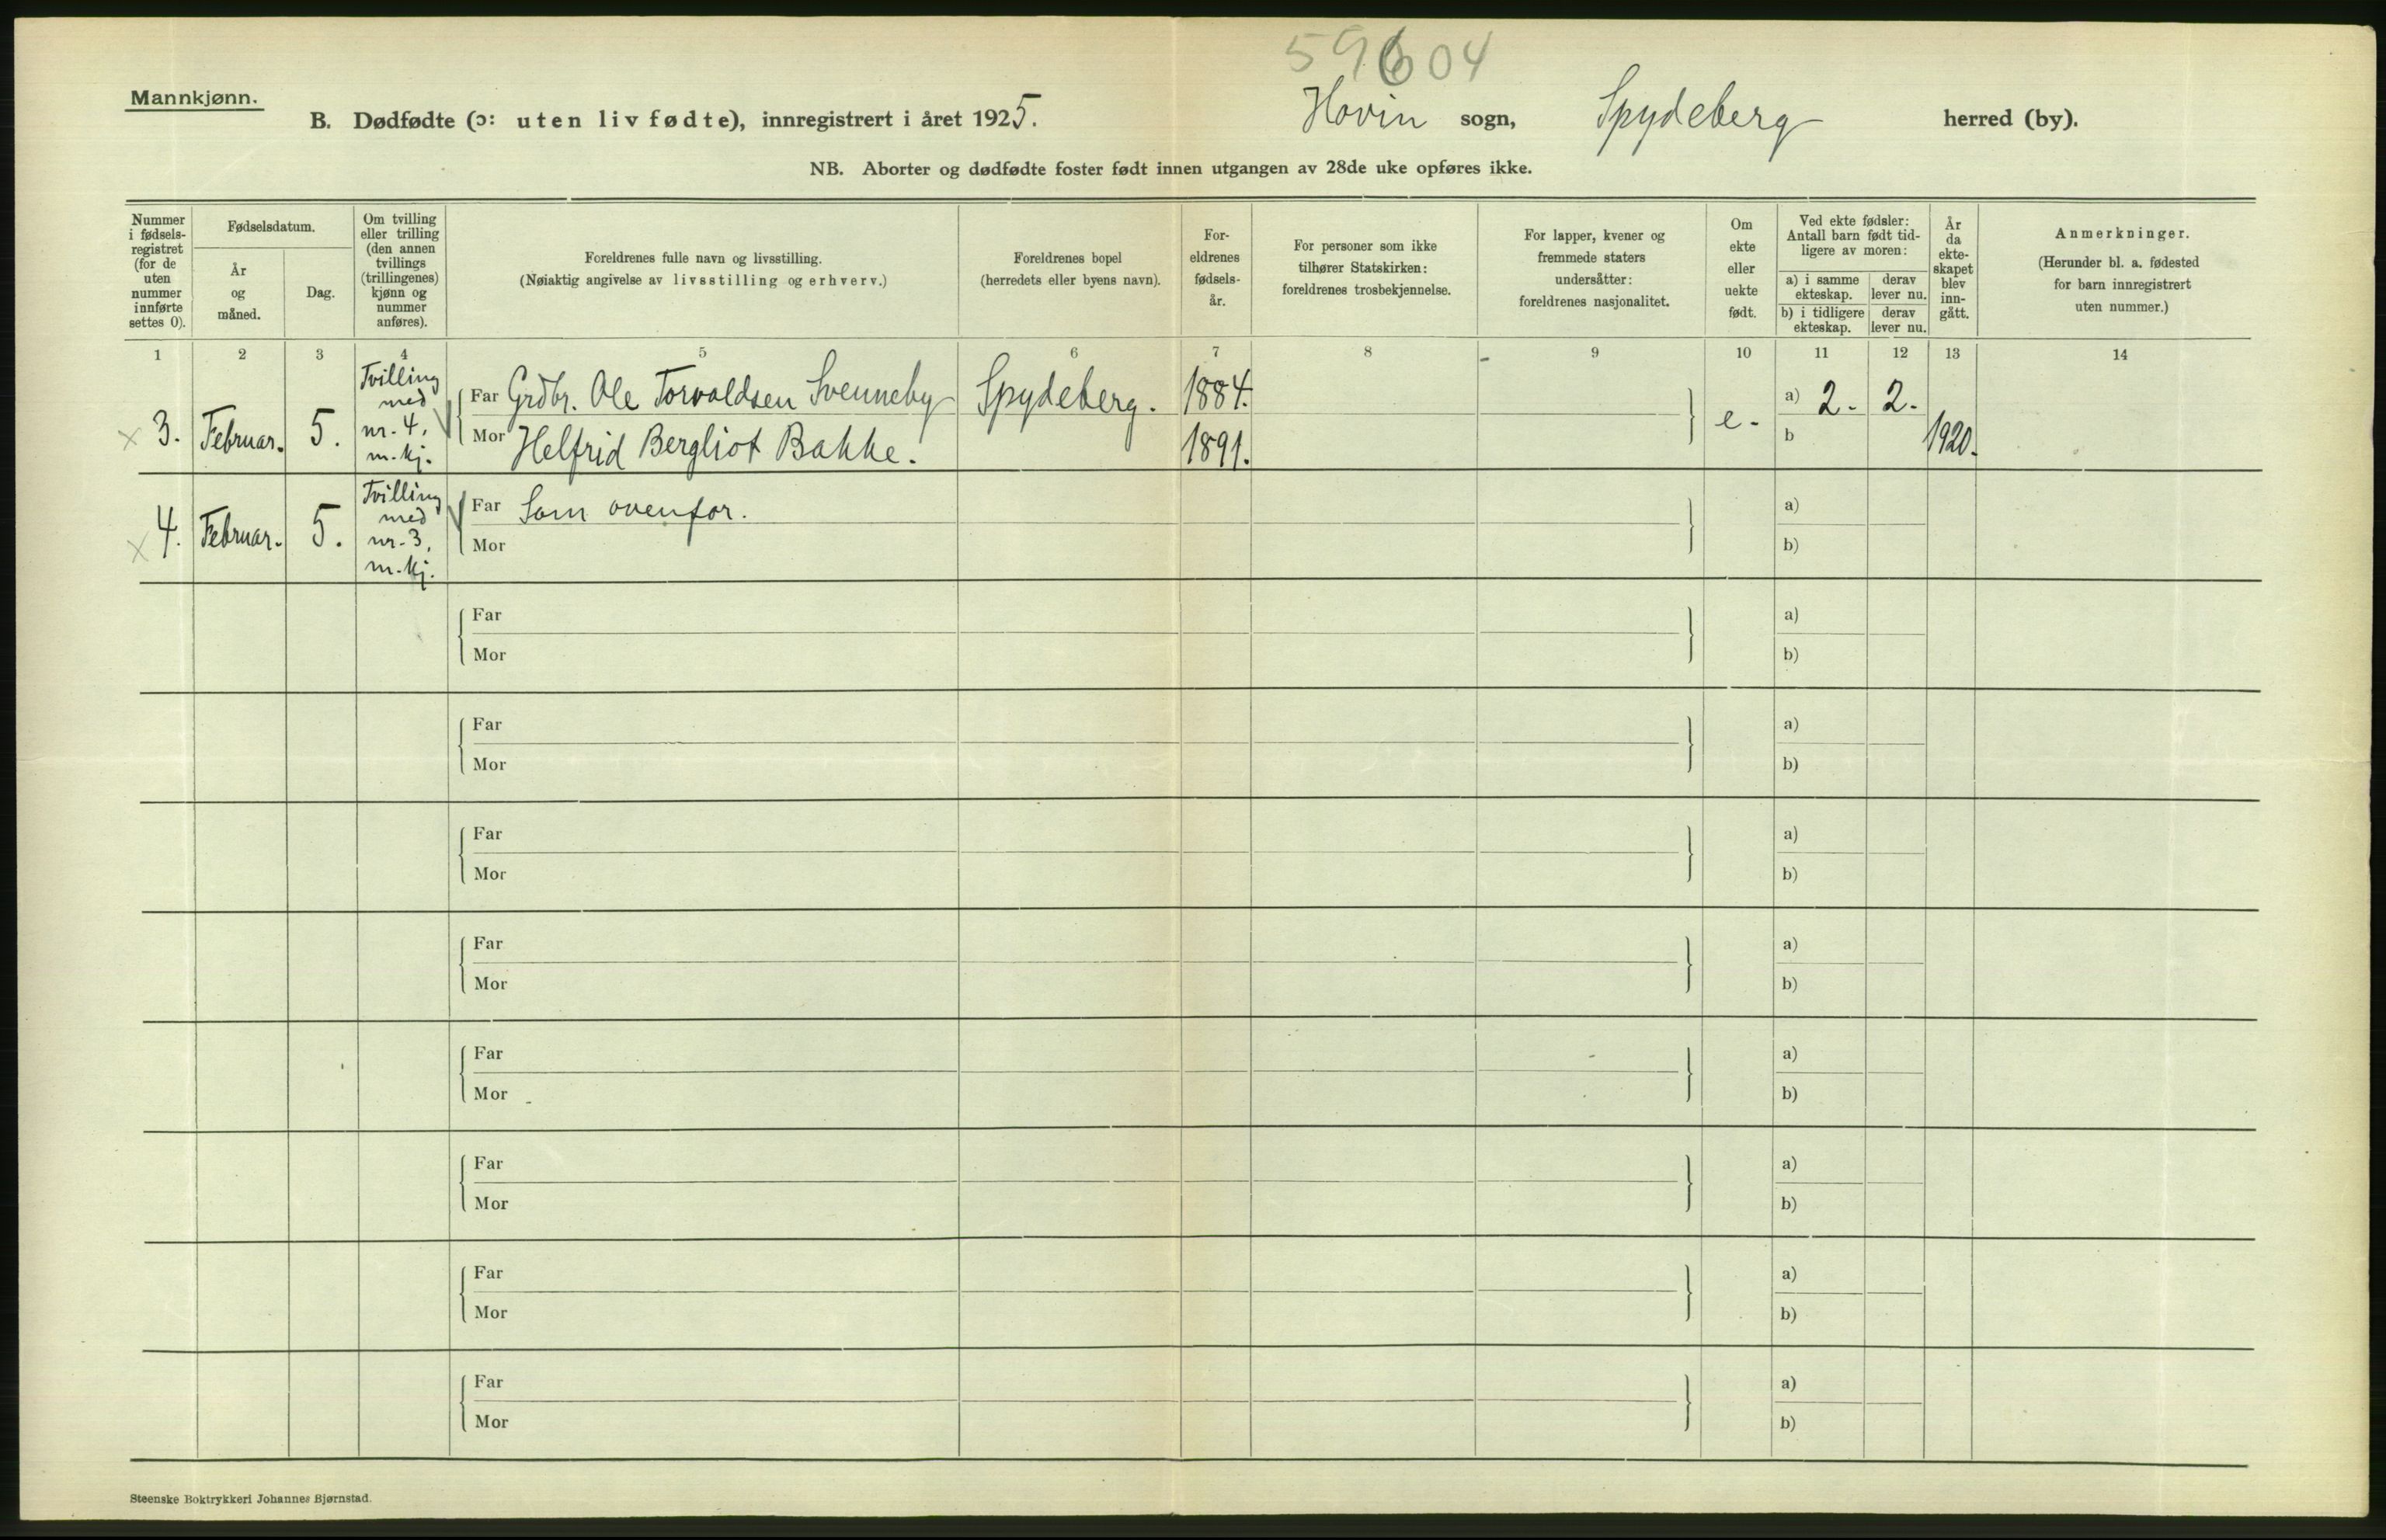 59604
Mannkjønn.
B. Dødfødte (ɔ: uten liv fødte), innregistrert i året 1925. Hovin sogn, Spydeberg herred (by).
NB. Aborter og dødfødte foster født innen utgangen av 28de uke opføres ikke.
Nummer
i fødsels-
registret
(for de
uten
nummer
innførte
settes 0).
Fødselsdatum.
År
og
måned.
Dag.
Om tvilling
eller trilling
(den annen
tvillings
(trillingenes)
kjønn og
nummer
anføres).
Foreldrenes fulle navn og livsstilling.
(Nøiaktig angivelse av livsstilling og erhverv.)
Foreldrenes bopel
(herredets eller byens navn).
For-
eldrenes
fødsels-
år.
For personer som ikke
tilhører Statskirken:
foreldrenes trosbekjennelse.
For lapper, kvener og
fremmede staters
undersåtter:
foreldrenes nasjonalitet.
Om
ekte
eller
uekte
født.
Ved ekte fødsler:
Antall barn født tid-
ligere av moren:
a) i samme
ekteskap.
derav
lever nu.
b) i tidligere
ekteskap.
derav
lever nu.
År
da
ekte-
skapet
blev
inn-
gått.
Anmerkninger.
(Herunder bl. a. fødested
for barn innregistrert
uten nummer.)
1 2 3 4 5 6 7 8 9 10 11 12 13 14
× 3. Februar. 5.
Tvilling
med
nr. 4,
m. kj.
Far Grdbr. Ole Torvaldsen Svenneby Spydeberg. 1884. e. a) 2. 2.
Mor Helfrid Bergliot Bakke. 1891. b 1920.
× 4. Februar. 5.
Tvilling
med
nr. 3,
m. kj.
Far Som ovenfor. a)
Mor b)
Far a)
Mor b)
Far a)
Mor b)
Far a)
Mor b)
Far a)
Mor b)
Far a)
Mor b)
Far a)
Mor b)
Far a)
Mor b)
Far a)
Mor b)
Steenske Boktrykkeri Johannes Bjørnstad.